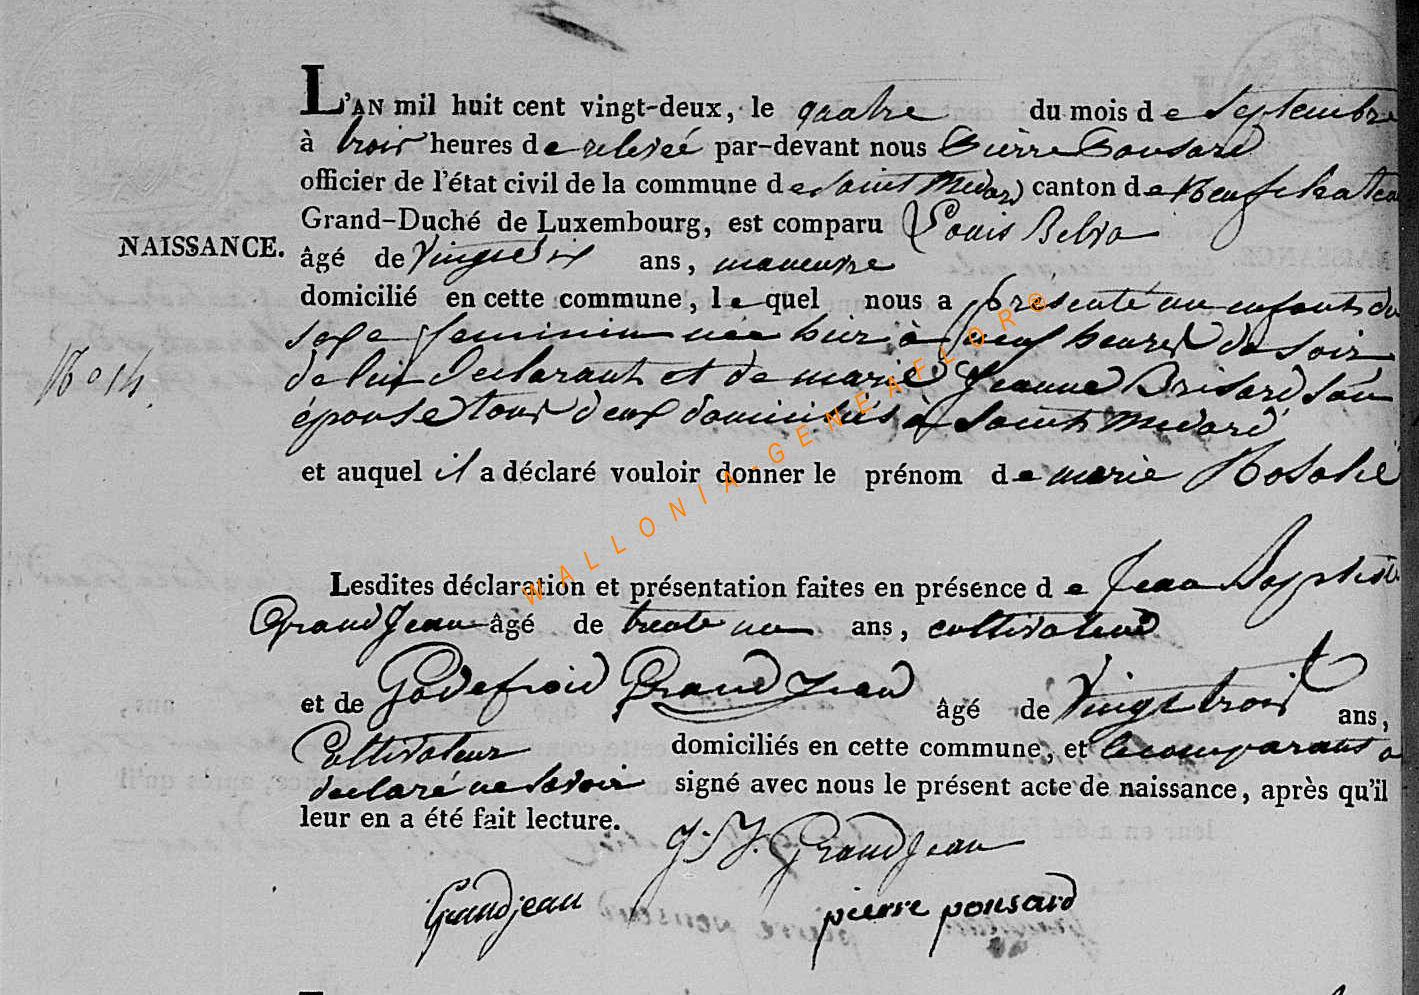 L'AN mil huit cent vingt-deux, le quatre du mois de Septembre
à trois heures de relevée par-devant nous Pierre Ponsard
officier de l'état civil de la commune de Saint Medard canton de Neufchateau
Grand-Duché de Luxembourg, est comparu Louis Belva
NAISSANCE.
âgé de Vingt Six ans, maneuvre
domicilié en cette commune, lequel nous a présenté un enfant du
sexe feminin née hier à neuf heures du soir
No 14.
de lui Declarant et de marie Jeanne Brisard son
épouse tous deux domiciliés à Saint Medard
et auquel il a déclaré vouloir donner le prénom de marie Rosalie
Lesdites déclaration et présentation faites en présence de Jean Baptiste
GrandJean âgé de trente un ans, cultivateur
et de Godefroid GrandJean âgé de Vingt trois ans,
Cultivateur domiciliés en cette commune, et le comparant a
declaré ne Savoir signé avec nous le présent acte de naissance, après qu'il
leur en a été fait lecture.
J. GrandJean
Grandjean pierre ponsard
WALLONIA-GENEAFLOR®